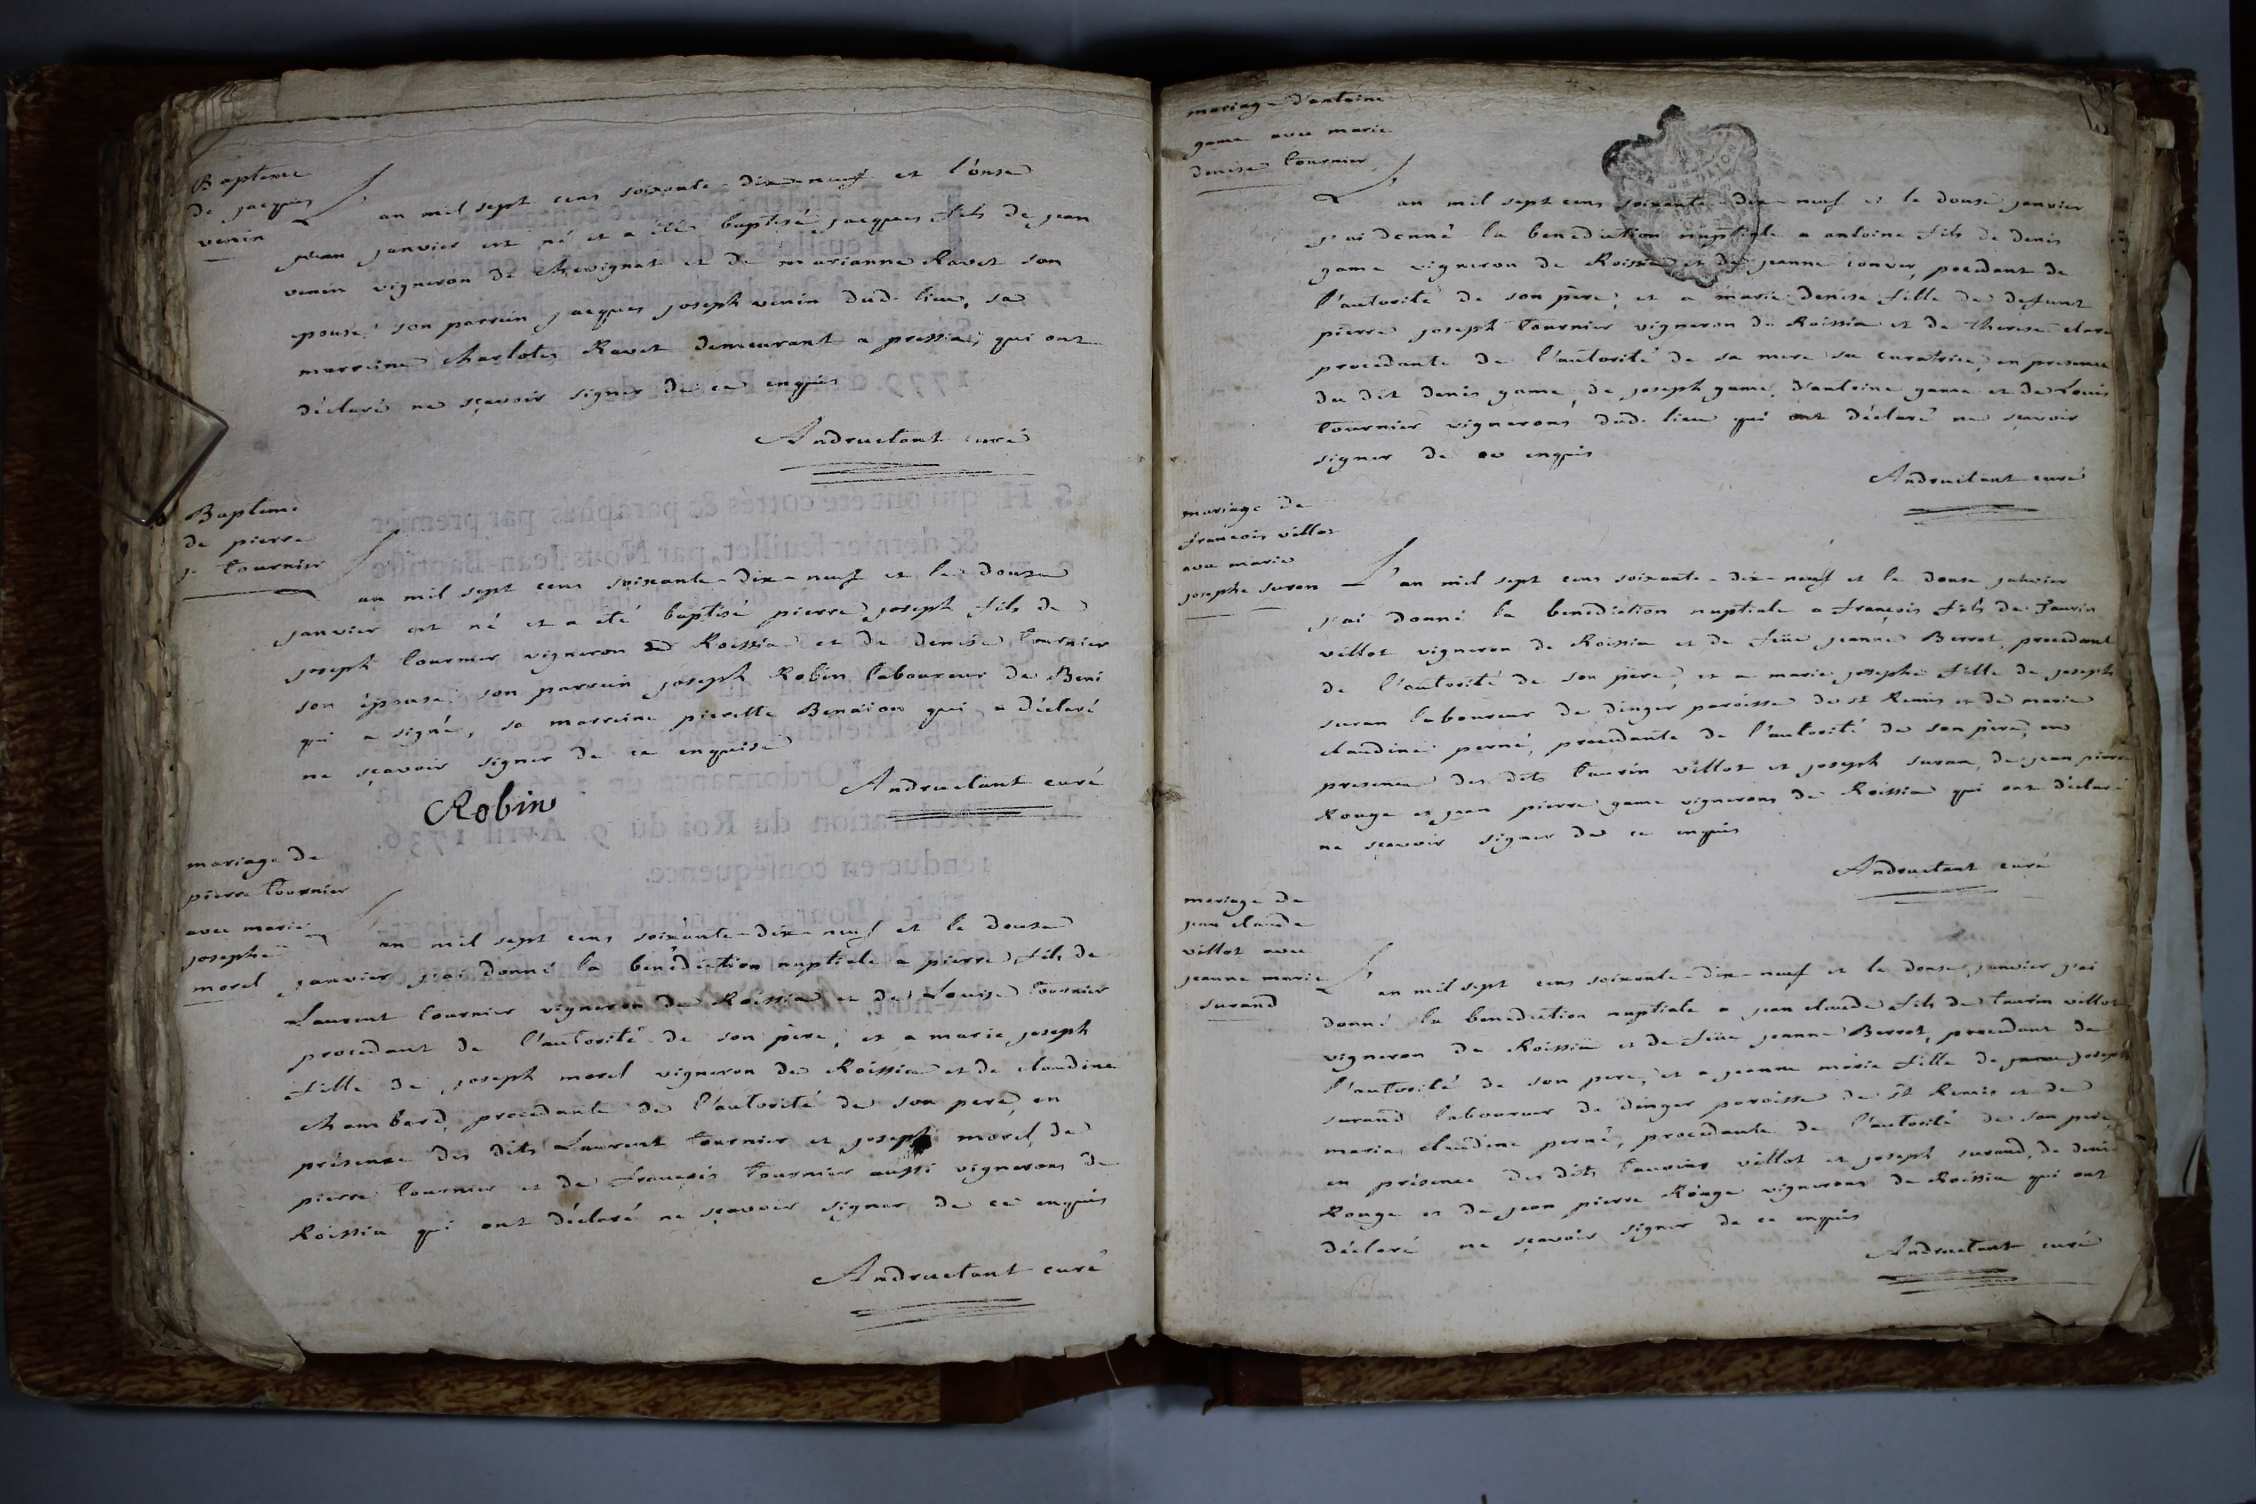 Bapteme
de jacques
venin
L'an mil sept cens soixante-dix-neuf et l'onse
janvier est né et a été baptisé jacques fils de jean
venin vigneron de chevignat et de marianne Ravet son
epouse son parrein jacques joseph venin dud. lieu, sa
marreine charlote Ravet demeurant a pressia, qui ont
déclaré ne sçavoir signer de ce enquis
Andructant curé
Bapteme
de pierre
j. tournier
L'an mil sept cens soixante-dix-neuf et le douse
janvier est né et a été baptisé pierre joseph fils de
joseph tournier vigneron de Roissia et de denise tournier
son épouse son parrein joseph Robin laboureur de Beni
qui a signé, sa marreine pierette Benaion qui a déclaré
ne sçavoir signer de ce enquise
Robin
Andructant curé
mariage de
pierre tournier
avec marie
josephe
morel
L'an mil sept cens soixante-dix-neuf et le douse
janvier j'ai donné la bénédiction nuptiale a pierre fils de
Laurent tournier vigneron de Roissia et de Louise tournier
procedant de l'autorité de son père, et a marie joseph
fille de joseph morel vigneron de Roissia et de claudine
chambard, procedante de l'autorité de son pere, en
présence des dits Laurent tournier et joseph morel, de
pierre tournier et de françois tournier aussi vignerons de
Roissia qui ont déclaré ne sçavoir signer de ce enquis
Andructant curé
mariage d'antoine
game avec marie
denise tournier
L'an mil sept cens soixante-dix-neuf et le douse janvier
j'ai donné la benediction nuptiale a antoine fils de denis
game vigneron de Roissia et de jeanne convers, procedant de
l'autorité de son père, et a marie denise fille de defunt
pierre joseph tournier vigneron de Roissia et de therese clerc
procedante de l'autorité de sa mere sa curatrice, en presence
du dit denis game, de joseph game, d'antoine game et de Louis
tournier vignerons dud. lieu qui ont déclaré ne sçavoir
signer de ce enquis
Andructant curé
mariage de
françois villot
avec marie
josephe suran
L'an mil sept cens soixante-dix-neuf et le douse janvier
j'ai donné la benediction nuptiale a françois fils de taurin
villot vigneron de Roissia et de feüe jeanne Berrot, procedant
de l'autorité de son père, et a marie josephe fille de joseph
suran laboureur de dinger paroisse de st Remis et de marie
claudine perné, procedante de l'autorité de son père, en
presence des dits taurin villot et joseph suran, de jean pierre
Rouge et jean pierre game vignerons de Roissia qui ont déclaré
ne sçavoir signer de ce enquis
Andructant curé
mariage de
jean claude
villot avec
jeanne marie
surand
L'an mil sept cens soixante-dix-neuf et le douse janvier j'ai
donné la benediction nuptiale a jean claude fils de taurin villot
vigneron de Roissia et de feüe jeanne Berrot, procedant de
l'autorité de son pere, et a jeanne marie fille de joseph
surand laboureur de dinger paroisse de st Remis et de
marie claudine perné, procedante de l'autorité de son pere,
en présence des dits taurin villot et joseph surand, de denis
Rouge et de jean pierre Rouge vignerons de Roissia qui ont
déclaré ne sçavoir signer de ce enquis
Andructant curé